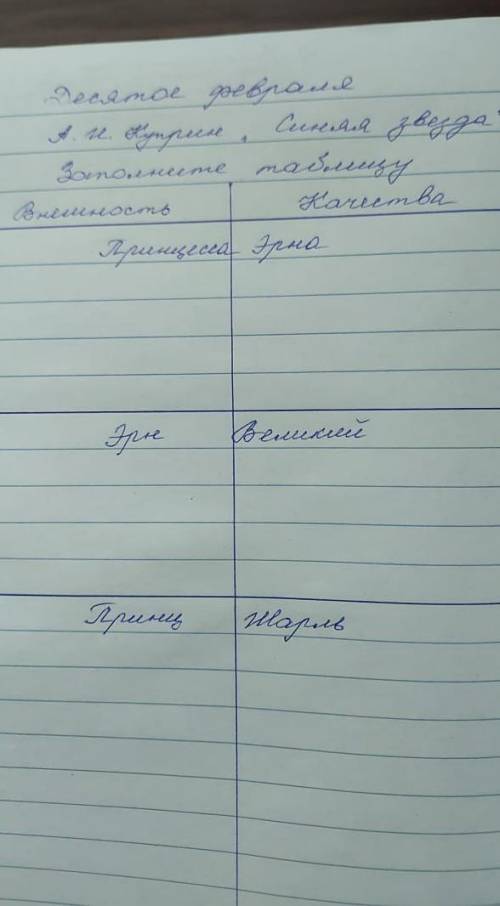 Десятое февраля
А. И. Куприн "Синяя звезда"
Заполните таблицу
Внешность Качества
Принцесса Эрна
Эрн Великий
Принц Шарль